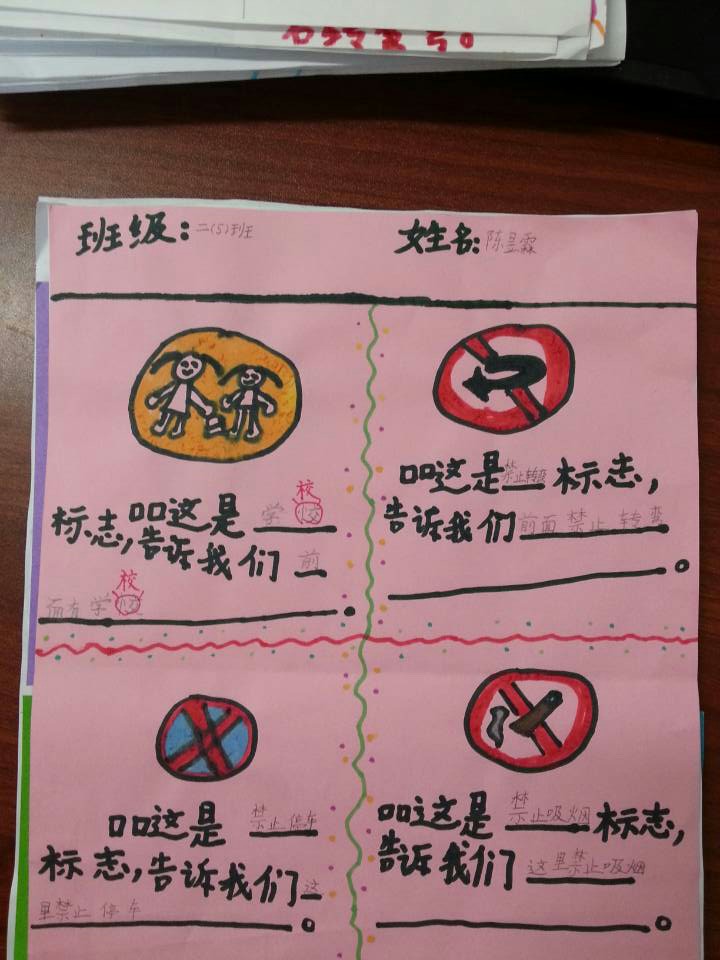 班级:二(5)班 姓名:陈昱霖
校
口口这是 学
标志,告诉我们 前
校
面有学 。
口口这是禁止转弯标志,
告诉我们前面禁止转弯
。
口口这是 禁止停车
标志,告诉我们这
里禁止停车 。
口口这是 禁止吸烟 标志,
告诉我们 这里禁止吸烟
。